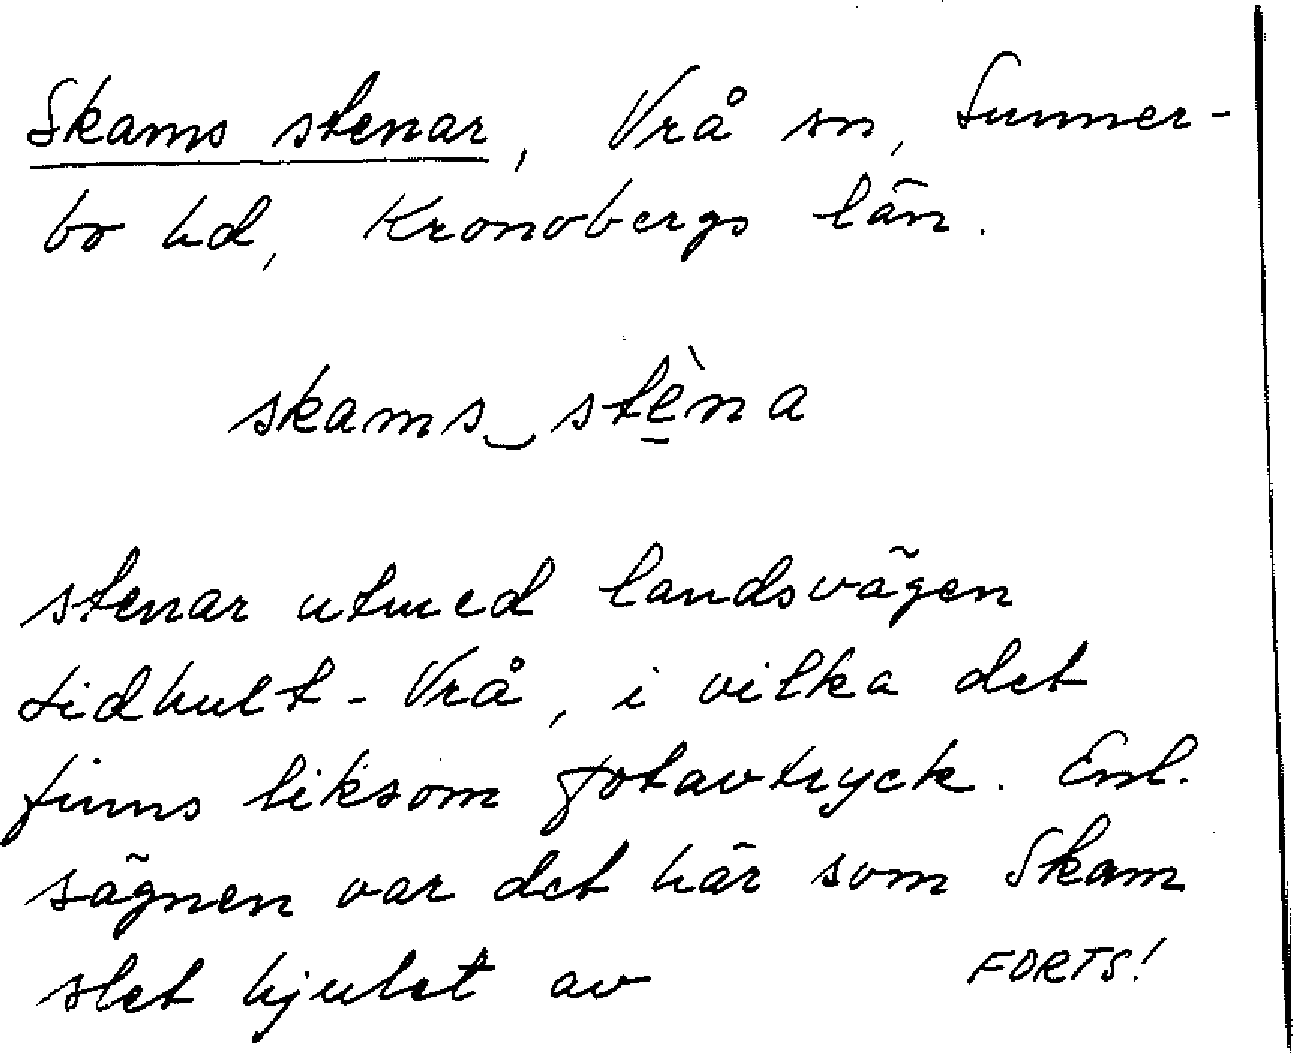 Skams stenar, Vrå sn, Sunner-
bo hd, Kronobergs län.
skams‿stè̱na
stenar utmed landsvägen
Lidhult - Vrå, i vilka det
finns liksom fotavtryck. Enl.
sägnen var det här som Skam
slet hjulet av
FORTS!